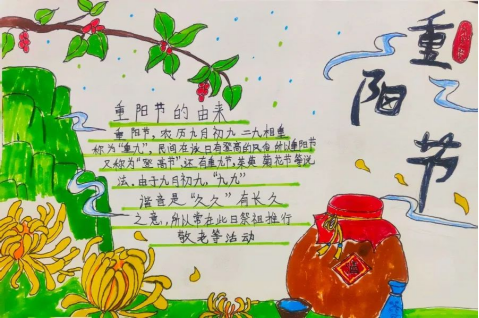 重阳节
重阳节的由来
重阳节，农历九月初九 二九相重
称为“重九”，民间在该日有登高的风俗 所以重阳节
又称为“登高节”.还有重九节，茱萸、菊花节等说
法，由于九月初九，“九九”
谐音是“久久”有长久
之意，所以常在此日祭祖推行
敬老等活动